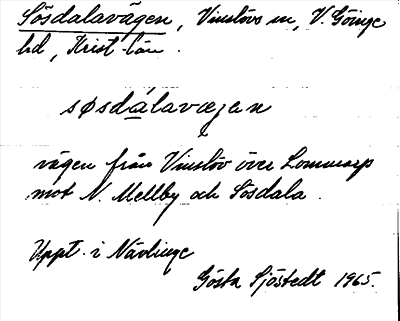 Sösdalavägen, Vinslövs sn, V. Göinge
hd, Krist. län.
søsdalavægen
vägen från Vinslöv över Lommarp
mot N. Mellby och Sösdala.
Uppt. i Nävlinge
Gösta Sjöstedt 1965.